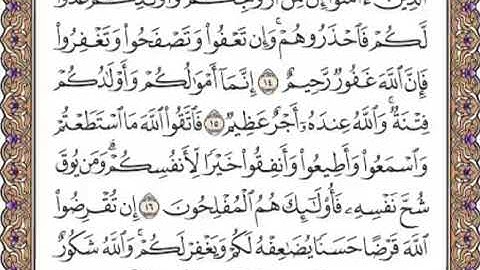 الَّذِينَ ءَامَنُوٓا۟ إِنَّ مِنْ أَزْوَٰجِكُمْ وَأَوْلَٰدِكُمْ عَدُوًّا
لَّكُمْ فَٱحْذَرُوهُمْ ۚ وَإِن تَعْفُوا۟ وَتَصْفَحُوا۟ وَتَغْفِرُوا۟
فَإِنَّ ٱللَّهَ غَفُورٌ رَّحِيمٌ ١٤ إِنَّمَآ أَمْوَٰلُكُمْ وَأَوْلَٰدُكُمْ
فِتْنَةٌ ۚ وَٱللَّهُ عِندَهُۥٓ أَجْرٌ عَظِيمٌ ١٥ فَٱتَّقُوا۟ ٱللَّهَ مَا ٱسْتَطَعْتُمْ
وَٱسْمَعُوا۟ وَأَطِيعُوا۟ وَأَنفِقُوا۟ خَيْرًا لِّأَنفُسِكُمْ ۗ وَمَن يُوقَ
شُحَّ نَفْسِهِۦ فَأُو۟لَٰٓئِكَ هُمُ ٱلْمُفْلِحُونَ ١٦ إِن تُقْرِضُوا۟
ٱللَّهَ قَرْضًا حَسَنًا يُضَٰعِفْهُ لَكُمْ وَيَغْفِرْ لَكُمْ ۚ وَٱللَّهُ شَكُورٌ